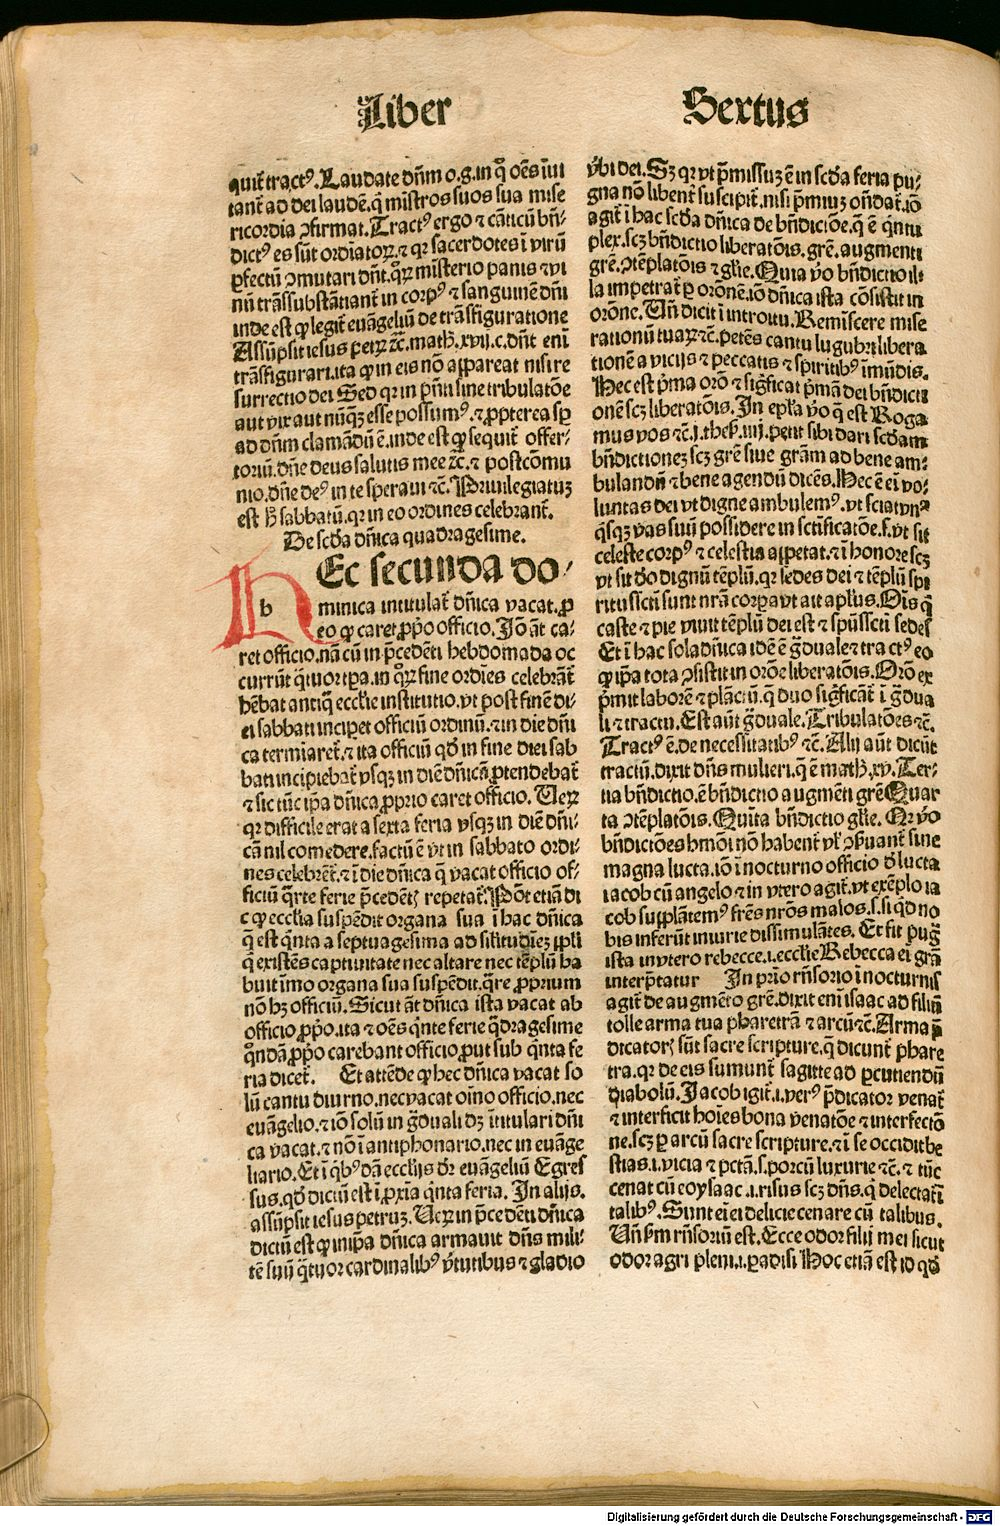 Liber Sextus
quit̄ tractꝰ. Laudate dn̄m o.g. in q̊ oēs īui
tant̄ ad dei laudē. q̄ mīstros suos sua mise
ricordia ꝯfirmat. Tractꝰ ergo ⁊ cāticū bn̄-
dictꝰ es sūt ordīatoꝝ. ⁊ qꝛ sacerdotes ī virū
ꝑfectū ꝯmutari dn̄t. q̊ꝝ mīsterio panis ⁊ vi
nū trāssubstātiant̄ in corpꝰ ⁊ sanguinē dn̄i
inde est ꝙ legit̄ euāgeliū de trāsfiguratione
Assūpsit iesus petꝝ ⁊c̄. math̄. xvij. c. dn̄t eni
trāsfigurari. ita ꝙ in eis nō appareat nisi re
surrectio dei Sed qꝛ in pn̄ti sine tribulatōe
aut vix aut nūqꝫ esse possumꝰ. ⁊ ꝓpterea sꝑ
ad dn̄m clamādū ē. inde est ꝙ sequit̄ offer-
toriū. dn̄e deus salutis mee ⁊c̄. ⁊ postcōmu
nio. dn̄e deꝰ in te speraui ⁊c̄. Priuilegiatuꝫ
est h̄ sabbatū. qꝛ in eo ordines celebrant̄.
De scd̄a dn̄ica quadragesime.
h Ec secunda do-
minica intitulat̄ dn̄ica vacat. ꝑ
eo ꝙ caret ꝓpo officio. Jō āt ca-
ret officio. nā cū in p̄cedēti hebdomada oc
currūt q̄tuor tꝑa. in q̊ꝝ fine ordīes celebrāt̄
hēbat antiq̄ ecclīe institutio. vt post finē di-
ei sabbati inciperet officiū ordinū. ⁊ in die dn̄i
ca termiaret̄. ⁊ ita officiū qd̄ in fine diei sab
bati incipiebat̄ vsqꝫ in diē dn̄icā ꝓtendebat̄
⁊ sic tūc ip̄a dn̄ica ꝓprio caret officio. Ueꝝ
qꝛ difficile erat a sexta feria vsqꝫ in diē dn̄i-
cā nil comedere. factū ē vt in sabbato ordi-
nes celebrēt̄. ⁊ ī die dn̄ica q̄ vacat officio of-
ficiū q̄rte ferie p̄cedētꝭ repetat̄. Pōt etiā di
c ꝙ ecclīa suspēdit organa sua ī hac dn̄ica
q̄ est q̄nta a septuagesima ad silitudīeꝫ ppli
q̄ existēs captiuitate nec altare nec tēplū ha
buit īmo organa sua suspēdit. q̄re ꝓprium
nō hꝫ officiū. Sicut āt dn̄ica ista vacat ab
officio ꝓpo. ita ⁊ oēs q̄nte ferie q̄dragesime
q̊ndā ꝓpo carebant officio. put sub q̄nta fe
ria dicet̄. Et attēde ꝙ hec dn̄ica vacat so
lū cantu diurno. nec vacat oīno officio. nec
euāgelio. ⁊ iō solū in g̊duali dꝫ ītitulari dn̄i
ca vacat. ⁊ nō ī antiphonario. nec in euāge
liario. Et ī qbꝰdā ecclijs dr̄ euāgeliū Egres
sus. qd̄ dictū est ī ꝓxīa q̄nta feria. In alijs.
assūpsit iesus petruꝫ. Ueꝝ in p̄cedēti dn̄ica
dictū est ꝙ in ip̄a dn̄ica armauit dn̄s mili-
tē suū q̄tuor cardinalibꝰ v̄tutibus ⁊ gladio
v̄bi dei. Sꝫ qꝛ vt p̄missuꝫ ē in scd̄a feria pu-
gna nō libent̄ suscipit̄. nisi p̄miuꝫ on̄dat̄. iō
agit̄ ī hac scd̄a dn̄ica de bn̄dictiōe. q̄ ē q̄ntu
plex. scꝫ bn̄dictio liberatōis. gr̄e. augmenti
gr̄e. ꝯtēplatōis ⁊ gl̄ie. Quia v̊o bn̄dictio il-
la impetrat̄ ꝑ orōnē. iō dn̄ica ista cōsistit in
orōne. Un̄ dicit̄ ī introitu. Remīscere mise
rationū tuaꝝ ⁊c̄. petēs cantu lugubri libera
tionē a vicijs ⁊ peccatis ⁊ spiritibꝰ īmūdis.
Hec est p̄ma orō ⁊ sigficat p̄mā dei bn̄dicti
onē scꝫ liberatōis. In ep̄la v̊o q̄ est Roga
mus vos ⁊c̄. j. thes̄. iiij. petit sibi dari scd̄am
bn̄dictioneꝫ scꝫ gr̄e siue gr̄am ad bene am-
bulandū ⁊ bene agendū dicēs. Hec ē ei vo-
luntas dei vt digne ambulemꝰ. vt sciat vnꝰ
q̄sqꝫ vas suū possidere in sctificatōe. s. vt sit
celeste corpꝰ ⁊ celestia appetat. ⁊ ī honore scꝫ
vt sit d̊o dignū tēplū. qꝛ sedes dei ⁊ tēplū spi
ritussctī sunt nr̄a corꝑa vt ait apl̄us. Oīs q̄
caste ⁊ pie viuit tēplū dei est ⁊ spūssctī sedes
Et ī hac sola dn̄ica idē ē g̊duale ⁊ tractꝰ eo
ꝙ ip̄a tota ꝯsistit in orōe liberatōis. Orō ex
p̄mit laborē ⁊ plāctū. q̄ duo sigficāt̄ ī g̊dua
li ⁊ tractu. Est aūt g̊duale. Tribulatōes ⁊c̄.
Tractꝰ ē. de necessitatibꝰ ⁊c̄. Alij aūt dicūt
tractū. dixit dn̄s mulieri. q̄ ē math̄. xv. Ter-
tia bn̄dictio. ē bn̄dictio augmēti gr̄e Quar
ta ꝯtēplatōis. Quīta bn̄dictio gl̄ie. Qꝛ v̊o
bn̄dictiōes hmōi nō habent̄ vl̓ ꝯẜuant̄ sine
magna lucta. iō ī nocturno officio d̓ lucta
iacob cū angelo ⁊ in vtero agit̄. vt exēplo ia
cob supplātemꝰ fr̄es nr̄os malos. s. si qd̄ no
bis inferūt iniurie dissimulātes. Et fit pug̊
ista in vtero rebecce. i. ecclie Rebecca ei gr̄a
interp̄tatur In pr̄io rn̄sorio ī nocturnis
agit̄ de augmēto gr̄e. dixit eni isaac ad filiū
tolle arma tua pharetrā ⁊ arcū ⁊c̄. Arma p̄
dicatorꝭ sūt sacre scripture. q̄ dicunt̄ phare
tra. qꝛ de eis sumunt̄ sagitte ad ꝑcutiendū
diabolū. Jacob igit̄. i. verꝰ p̄dicator venat̄
⁊ interficit hoīes bona v̄enatōe ⁊ interfectō
ne. scꝫ ꝑ arcū sacre scripture. ⁊ ī se occidit be
stias. i. vicia ⁊ pctā. s. porcū luxurie ⁊c̄. ⁊ tūc
cenat cū eo ysaac. i. risus scꝫ dn̄s. q̄ delectat̄ ī
talibꝰ. Sunt ei ei delicie cenare cū talibus.
Un̄ ẜm rn̄soriū est. Ecce odor filij mei sicut
odor agri pleni. i. ꝑadisi Hoc etiā est id qd̄
Digitalisierung gefördert durch die Deutsche Forschungsgemeinschaft - DFG